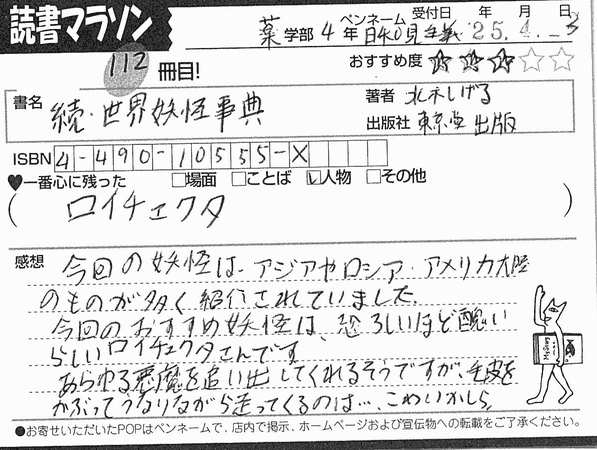 読書マラソン
112 冊目!
薬 学部 4 年 ペンネーム 日和見主義 受付日 25年 4月 3日
おすすめ度 ★★★☆☆
書名 続・世界妖怪事典
著者 水木しげる
出版社 東京堂出版
ISBN 4-490-10555-X
♥一番心に残った □場面 □ことば ☑人物 □その他
( ロイチェクタ )
感想 今回の妖怪は、アジアやロシア・アメリカ大陸
のものが多く紹介されていました。
今回のおすすめ妖怪は、恐ろしいほど醜い
らしいロイチェクタさんです。
あらゆる悪魔を追い出してくれるそうですが、毛皮を
かぶってうなりながら走ってくるのは…、こわいかしら。
●お寄せいただいたPOPはペンネームで、店内で掲示、ホームページおよび宣伝物への転載をご了承ください。